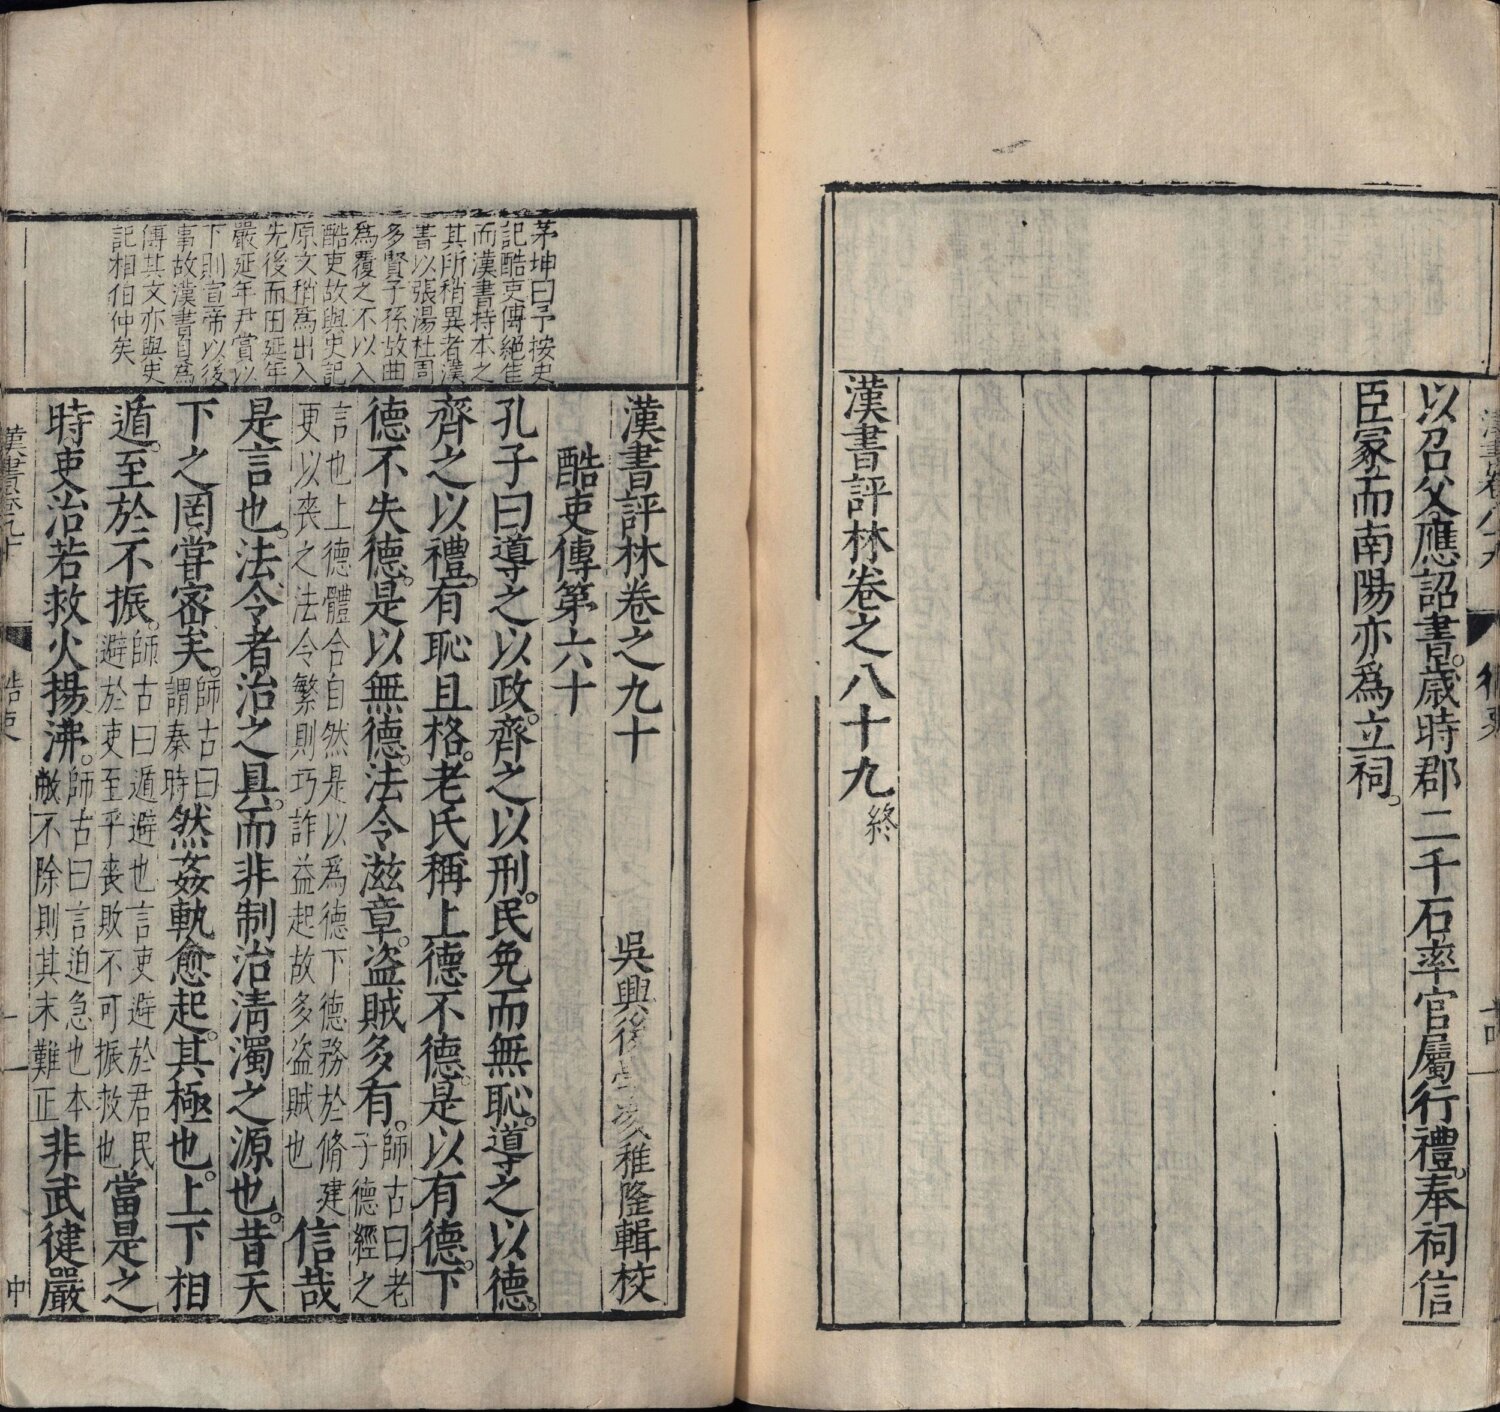 以召父應詔書。歲時郡二千石率官屬行禮。奉祠信
臣冢而南陽亦爲立祠。
漢書評林卷之八十九終
茅坤曰予按史
記酷吏傳絕佳
而漢書特本之
其所稍異者漢
書以張湯杜周
多賢子孫故曲
爲覆之不以入
酷吏故與史記
原文稍爲出入
先後而田延年
嚴延年尹賞以
下則宣帝以後
事故漢書自爲
傳其文亦與史
記相伯仲矣
漢書評林卷之九十
吳興後學凌稚隆輯校
酷吏傳第六十
孔子曰導之以政。齊之以刑。民免而無恥。導之以德。
齊之以禮。有恥且格。老氏稱上德不德。是以有德。下
德不失德。是以無德。法令滋章。盜賊多有。師古曰老子德經之
言也上德體合自然是以爲德下德務於脩建更以喪之法令繁則巧詐益起故多盜賊也信哉
是言也。法令者治之具。而非制治淸濁之源也。昔天
下之罔嘗密矣。師古曰謂秦時然姦軌愈起。其極也。上下相
遁。至於不振。師古曰遁避也言吏避於君民避於吏至乎喪敗不可振救也當是之
時吏治若救火揚沸。師古曰言迫急也本敝不除則其末難正非武健嚴
漢書卷九十
酷吏
一
中